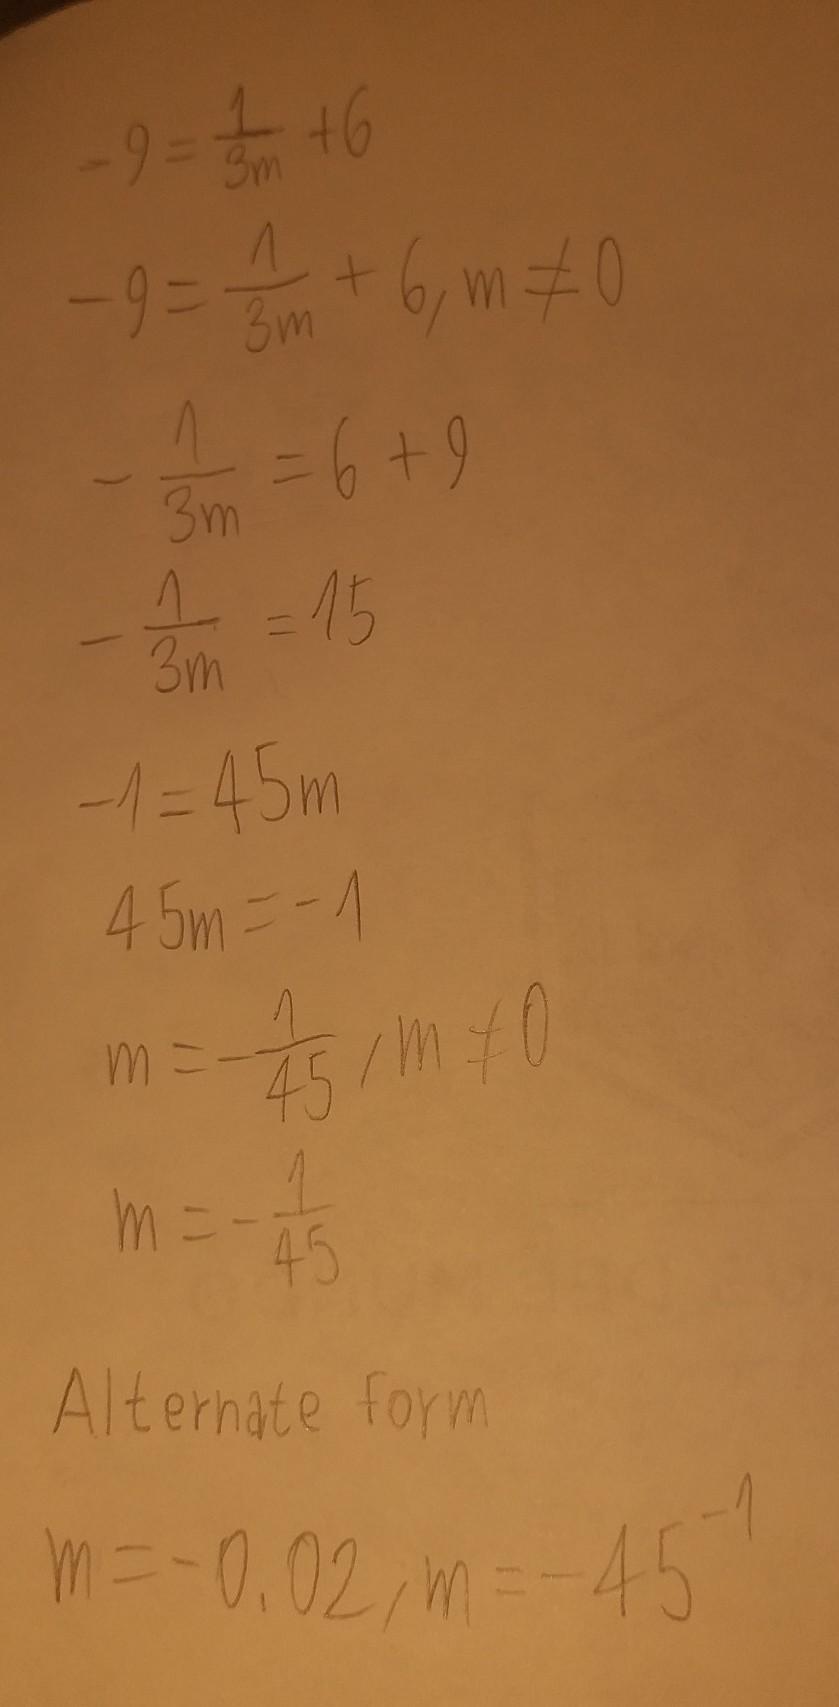 -9=1/3m+6
-9=1/3m+6, m≠0
-1/3m=6+9
-1/3m=15
-1=45m
45m=-1
m=-1/45, m≠0
m=-1/45
Alternate form
m=-0.02, m=-45⁻¹